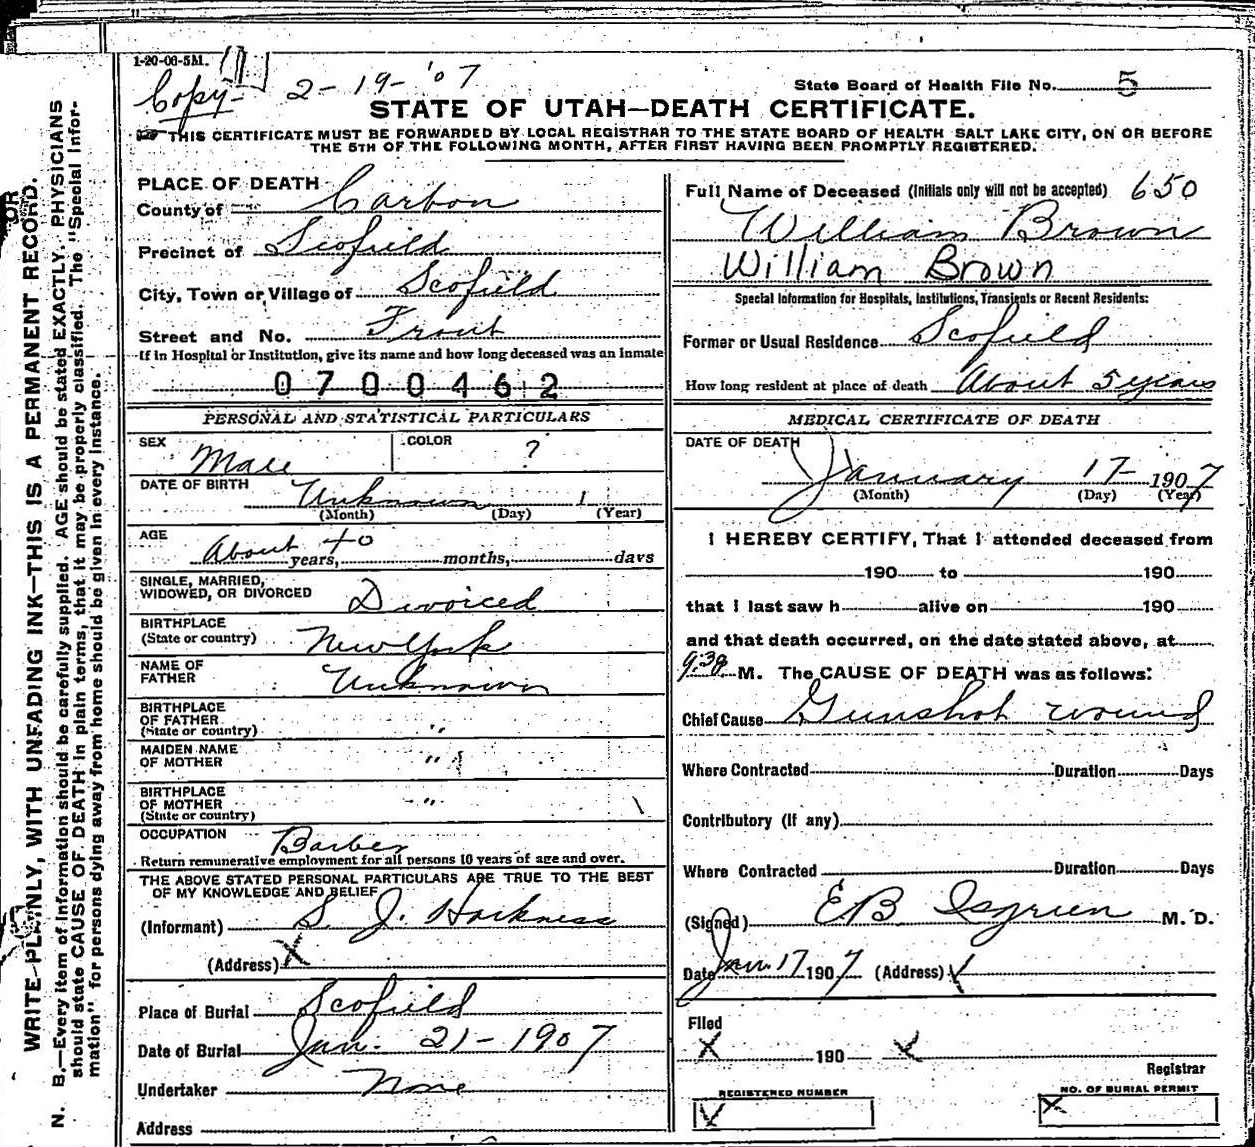 1-20-06-5M.
Copy- 2-19-'07
State Board of Health File No. 5
STATE OF UTAH—DEATH CERTIFICATE.
THIS CERTIFICATE MUST BE FORWARDED BY LOCAL REGISTRAR TO THE STATE BOARD OF HEALTH SALT LAKE CITY, ON OR BEFORE
THE 5TH OF THE FOLLOWING MONTH, AFTER FIRST HAVING BEEN PROMPTLY REGISTERED.
WRITE PLAINLY, WITH UNFADING INK—THIS IS A PERMANENT RECORD.
N. B.—Every item of information should be carefully supplied. AGE should be stated EXACTLY. PHYSICIANS
should state CAUSE OF DEATH in plain terms, that it may be properly classified. The "Special Infor-
mation" for persons dying away from home should be given in every instance.
PLACE OF DEATH
County of Carbon
Precinct of Scofield
City, Town or Village of Scofield
Street and No. Front
If in Hospital or Institution, give its name and how long deceased was an inmate
0700462
PERSONAL AND STATISTICAL PARTICULARS
SEX Male COLOR ?
DATE OF BIRTH Unknown 1
(Month) (Day) (Year)
AGE
About 40 years, months, days
SINGLE, MARRIED,
WIDOWED, OR DIVORCED Divorced
BIRTHPLACE
(State or country) New York
NAME OF
FATHER Unknown
BIRTHPLACE
OF FATHER
(State or country) "
MAIDEN NAME
OF MOTHER "
BIRTHPLACE
OF MOTHER "
(State or country)
OCCUPATION Barber
Return remunerative employment for all persons 10 years of age and over.
THE ABOVE STATED PERSONAL PARTICULARS ARE TRUE TO THE BEST
OF MY KNOWLEDGE AND BELIEF
(Informant) S. J. Harkness
(Address) X
Place of Burial Scofield
Date of Burial Jan. 21-1907
Undertaker None
Address
Full Name of Deceased (Initials only will not be accepted) 650
William Brown
William Brown
Special Information for Hospitals, Institutions, Transients or Recent Residents:
Former or Usual Residence Scofield
How long resident at place of death About 5 years
MEDICAL CERTIFICATE OF DEATH
DATE OF DEATH
January 17- 1907
(Month) (Day) (Year)
I HEREBY CERTIFY, That I attended deceased from
190 to 190
that I last saw h alive on 190
and that death occurred, on the date stated above, at
9:30 M. The CAUSE OF DEATH was as follows:
Chief Cause Gunshot wound
Where Contracted Duration Days
Contributory (if any)
Where Contracted Duration Days
(Signed) E B Isgreen M. D.
Date Jan. 17 1907 (Address)
Filed
X 190 X
Registrar
REGISTERED NUMBER
NO. OF BURIAL PERMIT
X